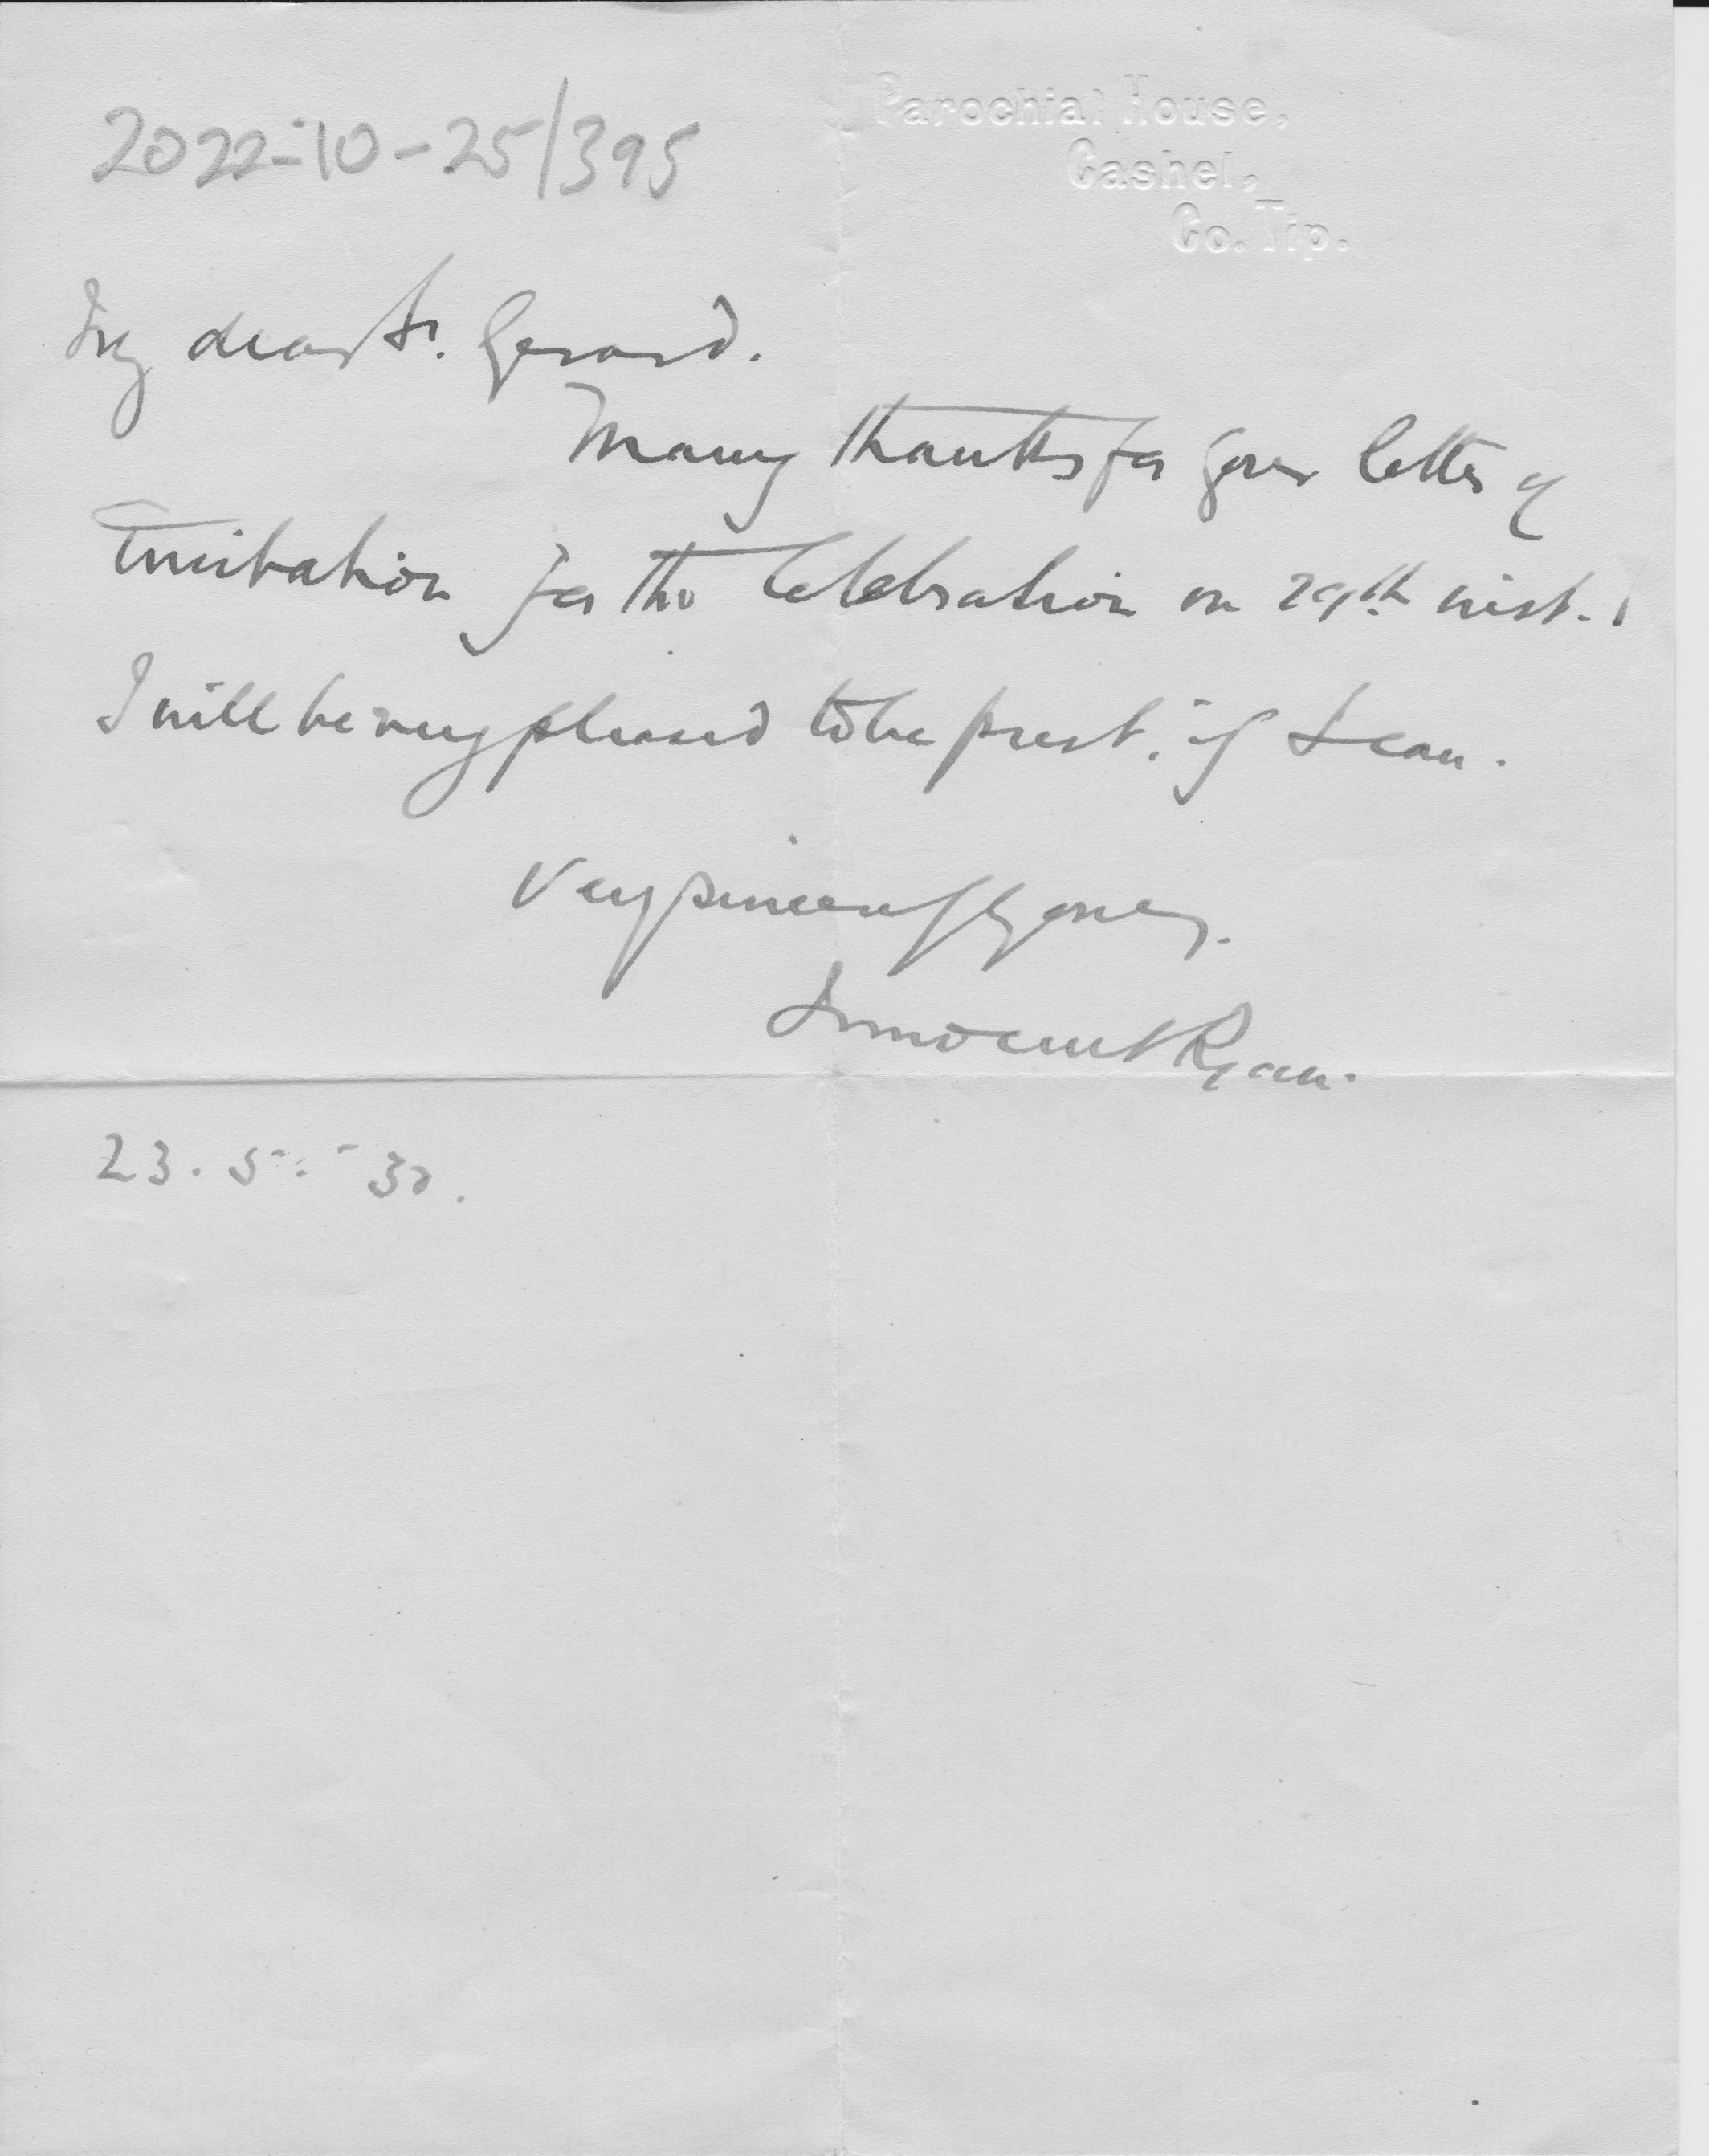 2022-10-25/395
Parochial House,
Cashel,
Co. Tip.
My dear Fr. Gerard.
Many thanks for your letter of
invitation for the Celebration on 29th inst.
I will be very pleased to be prest. if I can.
Very sincerely yours.
Innocent Ryan.
23.5.30.